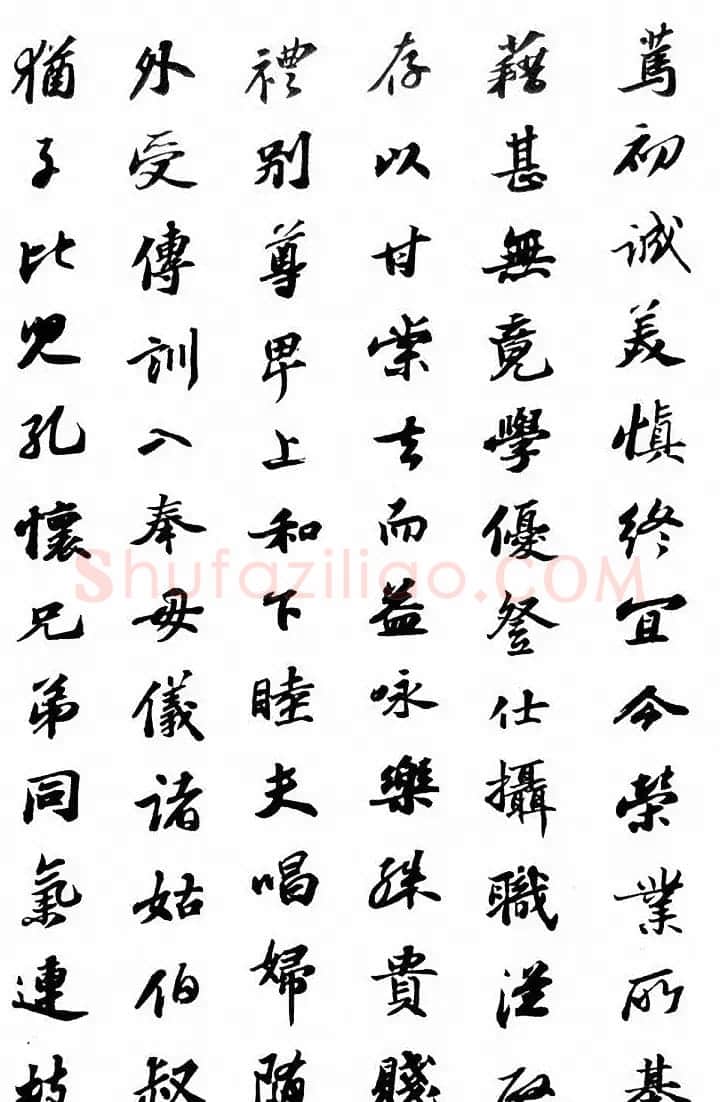 篤初誠美慎終宜令榮業所基
藉甚無竟學優登仕攝職從政
存以甘棠去而益咏樂殊貴賤
禮別尊卑上和下睦夫唱婦隨
外受傳訓入奉母儀諸姑伯叔
猶子比兒孔懷兄弟同氣連枝
Shufaziliao.COM